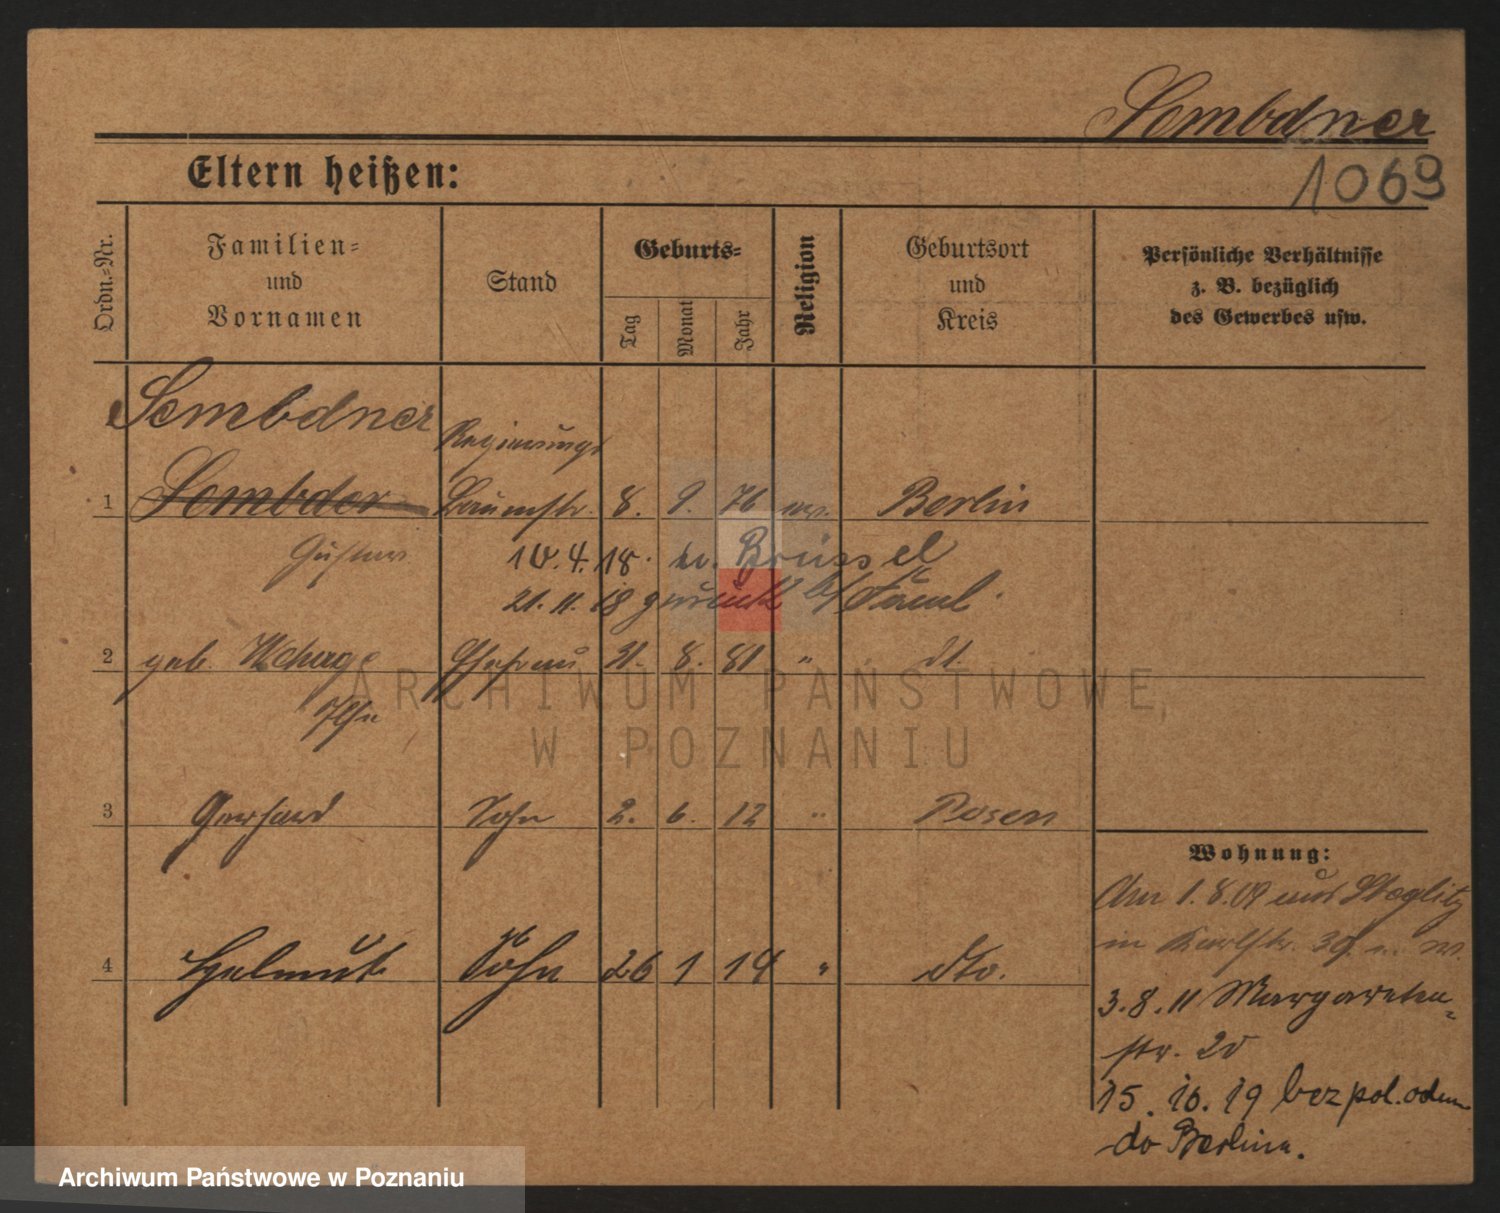 Sembdner
1069
Eltern heißen:
Ordn.-Nr.
Familien-
und
Vornamen
Stand
Geburts-
Tag
Monat
Jahr
Religion
Geburtsort
und
Kreis
Persönliche Verhältnisse
z. B. bezüglich
des Gewerbes usw.
Sembdner
Regierungs
1 Sembder Baumstr. 8. 9. 76 ev. Berlin
Gustav 10.4.18. n. Brüssel
21.11.18 zurück
2 geb. Ehefrau 21. 8. 81 " dt.
Ilse
3 Gerhard Sohn 2. 6. 12 " Posen
4 Helmut Sohn 26 1 14 " dto.
Wohnung:
Am 1.8.09 aus Steglitz
in Karlstr. 39
3.8.11 Margareten-
str. 20
15.10.19 bez pol.
do Berlina.
ARCHIWUM PAŃSTWOWE
W POZNANIU
Archiwum Państwowe w Poznaniu